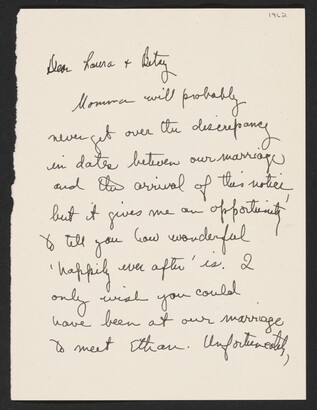 1962
Dear Laura + Betsy
Momma will probably
never get over the discrepancy
in dates between our marriage
and the arrival of this notice,
but it gives me an opportunity
to tell you how wonderful
'happily ever after' is. I
only wish you could
have been at our marriage
to meet Ethan. Unfortunately,